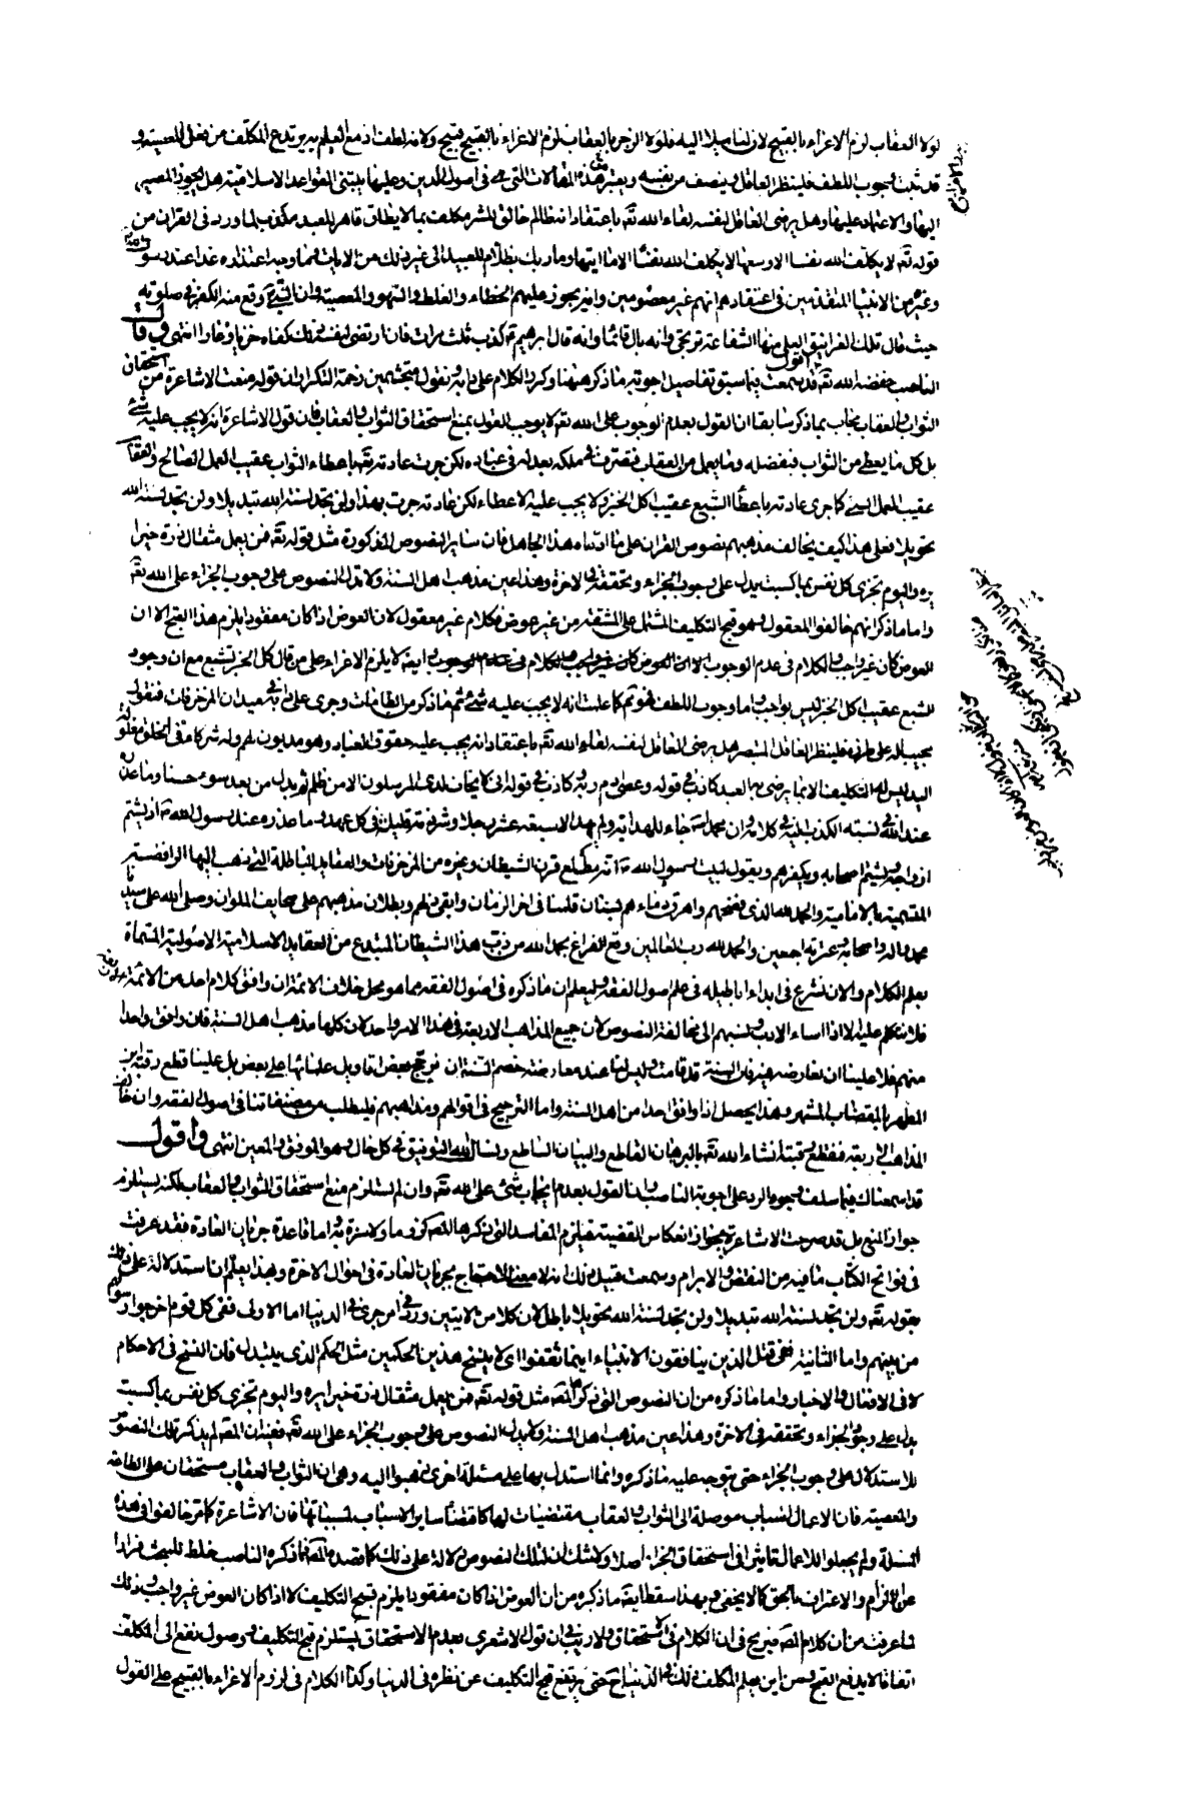 لولا العقاب لزم الاغراء بالقبيح لان لنا ميلا اليه فلولا الزجر بالعقاب لزم الاغراء بالقبيح والاغراء بالقبيح قبيح ولانه لطف اذ مع العلم به يرتدع المكلف من فعل المعصية و
قد ثبت وجوب اللطف فلينظر العاقل وينصف من نفسه ويعتبر هذه المقالات التى هى فى اصول الدين وعليها يبتنى القواعد الاسلامية هل يجوز المصير
اليها والاعتماد عليها وهل يرضى العاقل لنفسه لقاء الله تعه باعتقاد انه ظالم خالق للشر مكلف بما لا يطاق قاهر للعبد مكذب لما ورد فى القران من
قوله تعه لا يكلف الله نفسا الا وسعها لا يكلف الله نفسا الا ما اتيها وما ربك بظلام للعبيد الى غير ذلك من الايات فما وجه اعتذاره غدا عند
وغيره من الانبيا المتقدمين فى اعتقاده انهم غير معصومين وانه يجوز عليهم الخطاء والغلط والسهو والمعصية وان النبى وقع منه الكفر فى صلوته
حيث قال تلك الغرانيق العلى منها الشفاعة ترتجى وانه بال قائما وانه قال ابرهيم كذب ثلث مرات فان ارتضى لنفسه ذلك كفاه خزيا وعارا انتهى قال
الناصب خفضه الله اقول قد سمعت فيما سبق تفاصيل اجوبة ما ذكر ههنا وكرر الكلام على دابه ونقول متجشمين زحمة التكرار ان قوله منعت الاشاعرة من استحقاق
الثواب والعقاب يجاب بما ذكر سابقا ان القول بعدم الوجوب على الله تعه لا يوجب القول بمنع استحقاق الثواب والعقاب فان قول الاشاعرة انه لا يجب عليه شئ
بل كل ما يعطى من الثواب فبفضله وما يعمل من العقاب فتصرف فى ملكه بعدله فى عباده لكن جرت عادته تعه باعطاء الثواب عقيب العمل الصالح والعقاب
عقيب العمل السيئ كما جرى عادته باعطاء الشبع عقيب اكل الخبز ولا يجب عليه الاعطاء لكن عادته جرت بهذا ولن تجد لسنة الله تبديلا ولن تجد لسنة الله
تحويلا فعلى هذا كيف يخالف مذهبهم نصوص القران على ما ادعاه هذا الجاهل فان ساير النصوص المذكورة مثل قوله تعه فمن يعمل مثقال ذرة خيرا
يره واليوم تجزى كل نفس بما كسبت يدل على وجود الجزاء وتحققه فى الاخرة وهذا عين مذهب اهل السنة ولا تدل النصوص على وجوب الجزاء على الله تعه
واما ما ذكر انهم خالفوا المعقول وهو قبح التكليف المشتمل على المشقة من غير عوض فكلام غير معقول لان العوض اذا كان مفقودا يلزم هذا القبح الا ان
العوض كان غير واجب والكلام فى عدم الوجوب وايضا لا يلزم الاغراء على من قال كل الخبز تشبع مع ان وجود
الشبع عقيب اكل الخبز ليس بواجب واما وجوب اللطف فهو كما علمت انه لا يجب عليه شئ ثم ما ذكر من الطامات وجرى على دابه فى تعديد المزخرفات فنقول
مجيبا له على طرزه فلينظر العاقل المتبصر هل يرضى العاقل لنفسه لقاء الله تعه باعتقاد انه يجب عليه حقوق العباد وهو مديون لهم وله شركاء فى الخلق مغلول
اليد ليس له التكليف الا بما يرضى به العبد كاذب فى قوله وعصى ادم ربه كاذب فى قوله انى لا يخاف لدى المرسلون الا من ظلم ثم بدل حسنا بعد سوء وما
عند الله فى نسبته الكذب اليه فى كلامه وان محمدا جاء للهداية ولم يهد الا سبعة عشر رجلا وشرذمة قليلة فى كل عهد وما عذره عند رسول الله اذ يشتم
ازواجه ويشتم اصحابه ويكفرهم ويقول لبيت رسول الله انه مطلع قرن الشيطان وغيره من المزخرفات والعقايد الباطلة التى ذهب اليها الرافضة
المتسمية بالامامية والحمد لله الذى فضحهم واهرق دماءهم بسنان قلمنا فى اخر الزمان وابقى ذلهم وبطلان مذهبهم على صحايف الملوان وصلى الله على سيدنا
محمد واله واصحابه وعترته اجمعين والحمد لله رب العالمين وقع الفراغ بحمد الله من ذب هذا الشيطان المبتدع من العقايد الاسلامية الاصولية المسماة
بعلم الكلام والان نشرع فى ابداء اباطيله فى علم اصول الفقه وليعلم ان ما ذكره فى اصول الفقه مما هو محل خلاف الائمة ان وافق كلام احد من الائمة
فلا نتكلم عليه الا اذا اساء الادب ونسبهم الى مخالفة النصوص لان جميع المذاهب الاربعة فى هذا الامر واحد لان كلها مذهب اهل السنة فان وافق واحدا
منهم فلا علينا ان نعارضه فيه فان السنة قد قامت وليس لنا عند معارضة خصم السنة ان نرجح بعض اقاويل علمائها على بعض بل علينا قطع رقبة ابن
المطهر بالمقضاب المشهر وهذا يحصل اذا وافق احدا من اهل السنة واما الترجيح فى اقوالهم ومذاهبهم فليطلب من مصنفاتنا فى اصول الفقه وان خالف
المذاهب الاربعة فنقطع رقبته انشاء الله تعه بالبرهان القاطع والبيان الساطع ونسال الله التوفيق فى كل حال وهو الموفق والمعين انتهى واقول
قد اسمعناك فيما سلف وجوه الرد على اجوبة الناصب وان القول بعدم ايجاب شئ على الله تعه وان لم يستلزم منع استحقاق الثواب والعقاب لكنه يستلزم
جواز المنع بل قد صرحت الاشاعرة بجواز انعكاس القضية فيلزم المفاسد التى ذكرها المصه كون ما ولا سترة به واما قاعدة جريان العادة فقد عرفت
فى فواتح الكتاب ما فيه من النقض والابرام وسمعت قبيل ذلك انه لا معنى للاحتجاج بجريان العادة فى احوال الاخرة وهذا يعلم ان استدلاله على ذلك
بقوله تعه ولن تجد لسنة الله تبديلا ولن تجد لسنة الله تحويلا باطل لان كلا من الايتين ورد فى امر جرى فى الدنيا اما الاولى ففى كل قوم اخرجوا رسولهم
من بينهم واما الثانية ففى قتل الذين ينافقون الانبياء اينما ثقفوا اى لا ينسخ هذين الحكمين مثل الحكم الذى يتبدل فان النسخ فى الاحكام
لا فى الافعال والاخبار واما ما ذكره من ان النصوص التى ذكرها المصه مثل قوله تعه فمن يعمل مثقال ذرة خيرا يره واليوم تجزى كل نفس بما كسبت
يدل على وجود الجزاء وتحققه فى الاخرة وهذا عين مذهب اهل السنة ولا يدل النصوص على وجوب الجزاء على الله تعه ففيه ان المصه لم يذكر تلك النصوص
للاستدلال على وجوب الجزاء حتى يتوجه عليه ما ذكره وانما استدل بها على مسئلة اخرى ذهبوا اليه وهى ان الثواب والعقاب مستحقان على الطاعة
والمعصية فان الاعمال اسباب موصلة الى الثواب والعقاب مقتضيات لها كاقتضاء ساير الاسباب لمسبباتها فان الاشاعرة كما مر خالفوا فى هذه
المسئلة ولم يجعلوا للاعمال تاثيرا فى استحقاق الجزاء اصلا ولا شك ان لتلك النصوص دلالة على ذلك كما قصده المصه فما ذكره الناصب خلط للبحث فرارا
عن الالزام والاعتراف بالحق كما لا يخفى وبهذا سقط ايضا ما ذكره من ان العوض اذا كان مفقودا يلزم قبح التكليف لا اذا كان العوض غير واجب وذلك
لما عرفت من ان كلام المصه صريح فى ان الكلام فى الاستحقاق ولا ريب فى ان قول الاشعرى بعدم الاستحقاق يستلزم قبح التكليف ووصول نفع الى المكلف
اتفاقا لا يدفع القبح ومن اين يعلم المكلف ذلك فى الدنيا ح حتى يرتفع قبح التكليف عن نظره فى الدنيا وكذا الكلام فى لزوم الاغراء بالقبيح على القول